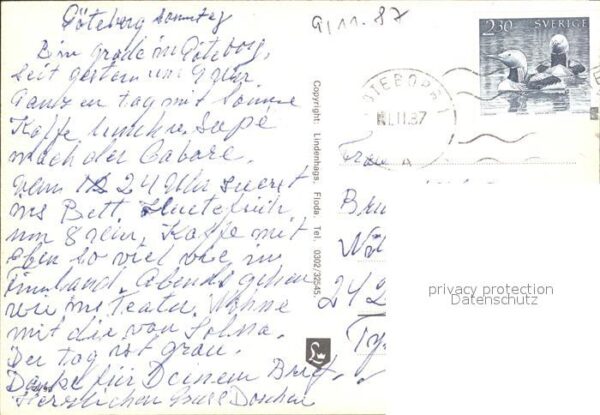 Göteborg Sonntag
Bin grade in Göteborg,
seit gestern um 9 Uhr
Ganzen tag mit Sonne
Kaffe
nach der
24 Uhr zuerst
ins Bett, Heute früh
um 8 Uhr, Kaffe mit
Eben so viel wie in
Finnland. Abends gehen
wir ins Teater. Wohne
mit die von Solna.
Der tag ist grau.
Danke für Deinem Brief
Herzlichen Gruss
9/11.87
SVERIGE
2.30
GÖTEBORG 1
11.87
A
Copyright: Lindenhags, Floda. Tel. 0302/32545.
Frau
Bru
242
Ty
privacy protection
Datenschutz